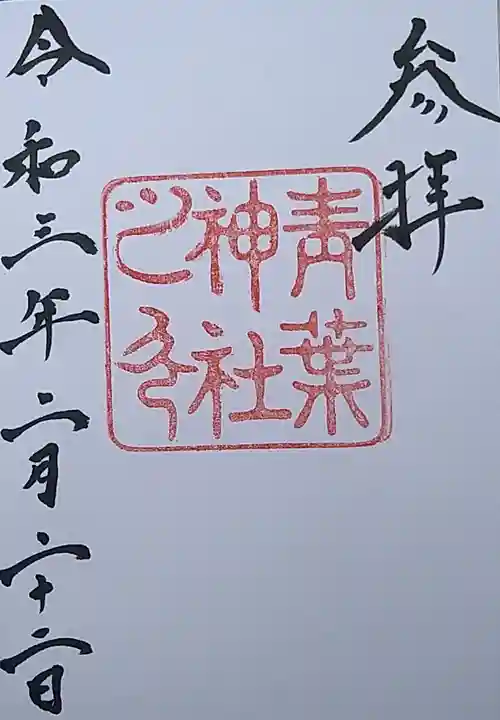 参拝
青葉
神社
之印
令和三年二月二十二日